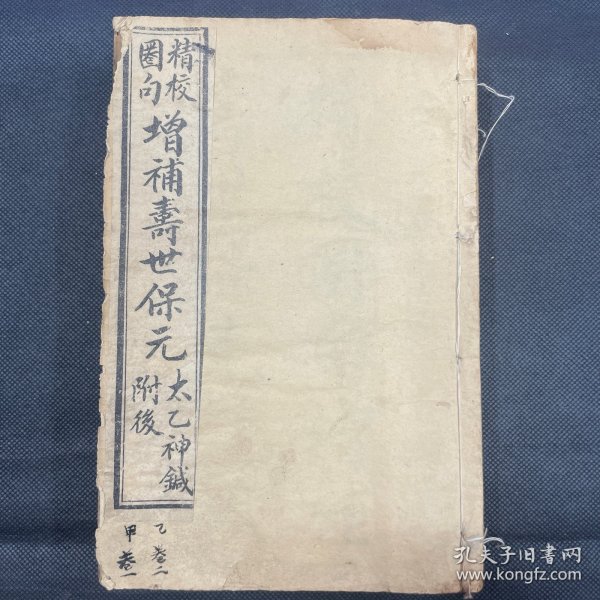 精校
圈句
增補壽世保元
太乙神鍼
附後
乙卷二
甲卷一
孔夫子旧书网
www.kongfz.com